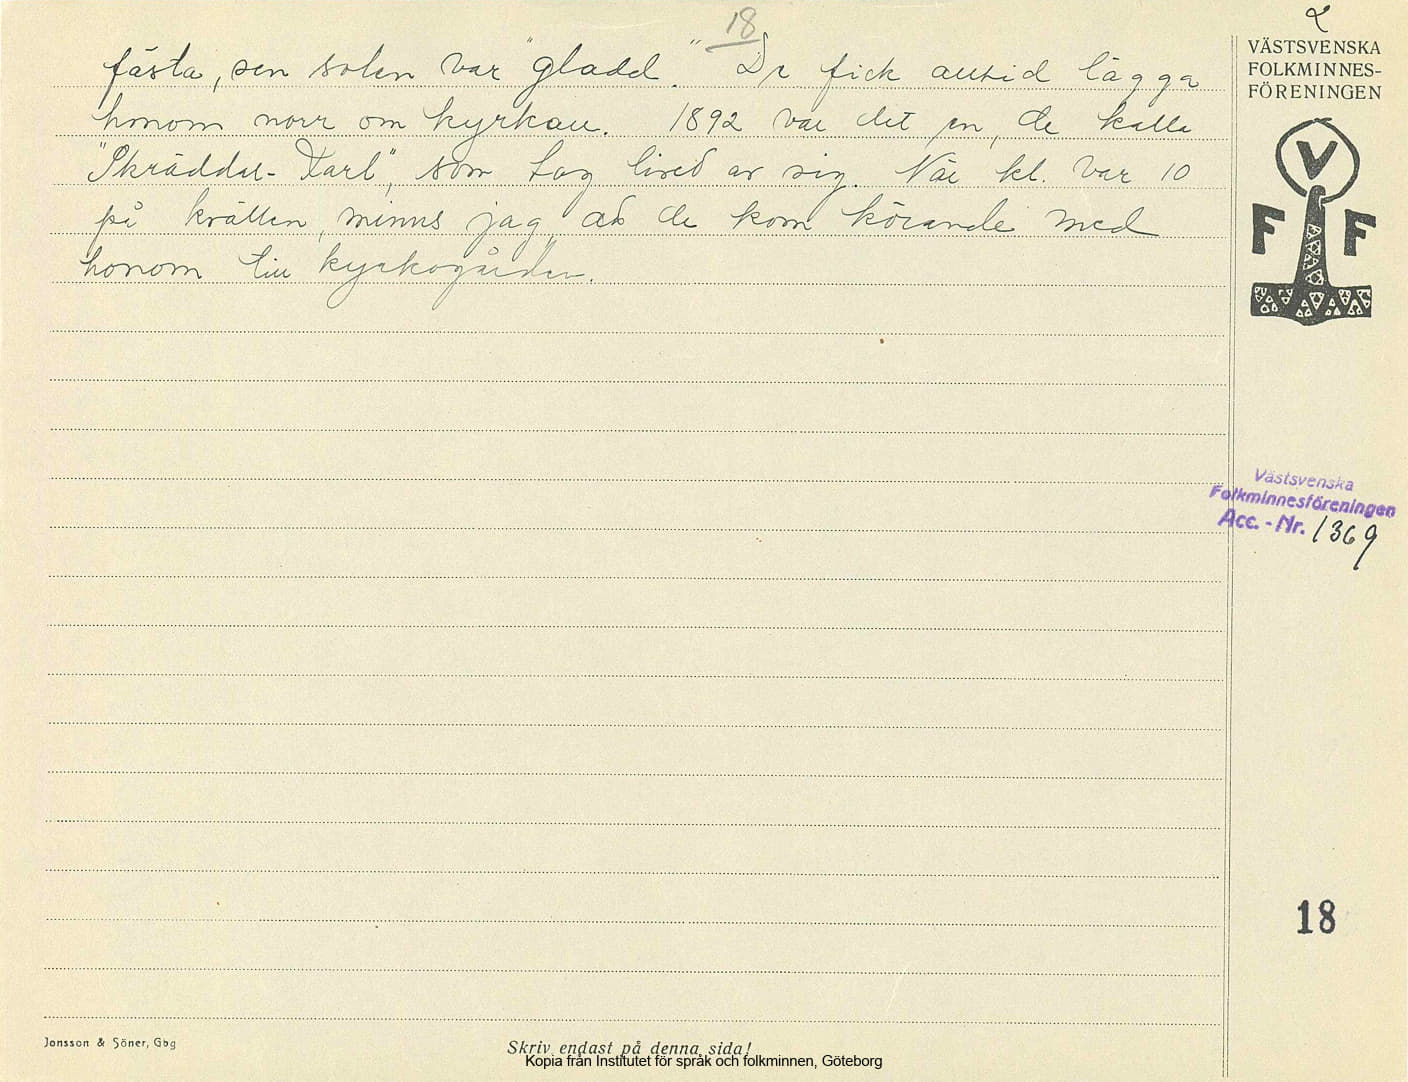 18
2
fästa, sen solen var "gladd." De fick alltid lägga
honom norr om kyrkan. 1892 var det en, de kalla
"Skräddar-Karl", som tog livet av sig. När kl. var 10
på kvällen, minns jag, att de kom körande med
honom till kyrkogården.
VÄSTSVENSKA
FOLKMINNES-
FÖRENINGEN
V
F F
Västsvenska
Folkminnesföreningen
Acc. - Nr. 1369
18
Jonsson & Söner, Gbg
Skriv endast på denna sida!
Kopia från Institutet för språk och folkminnen, Göteborg